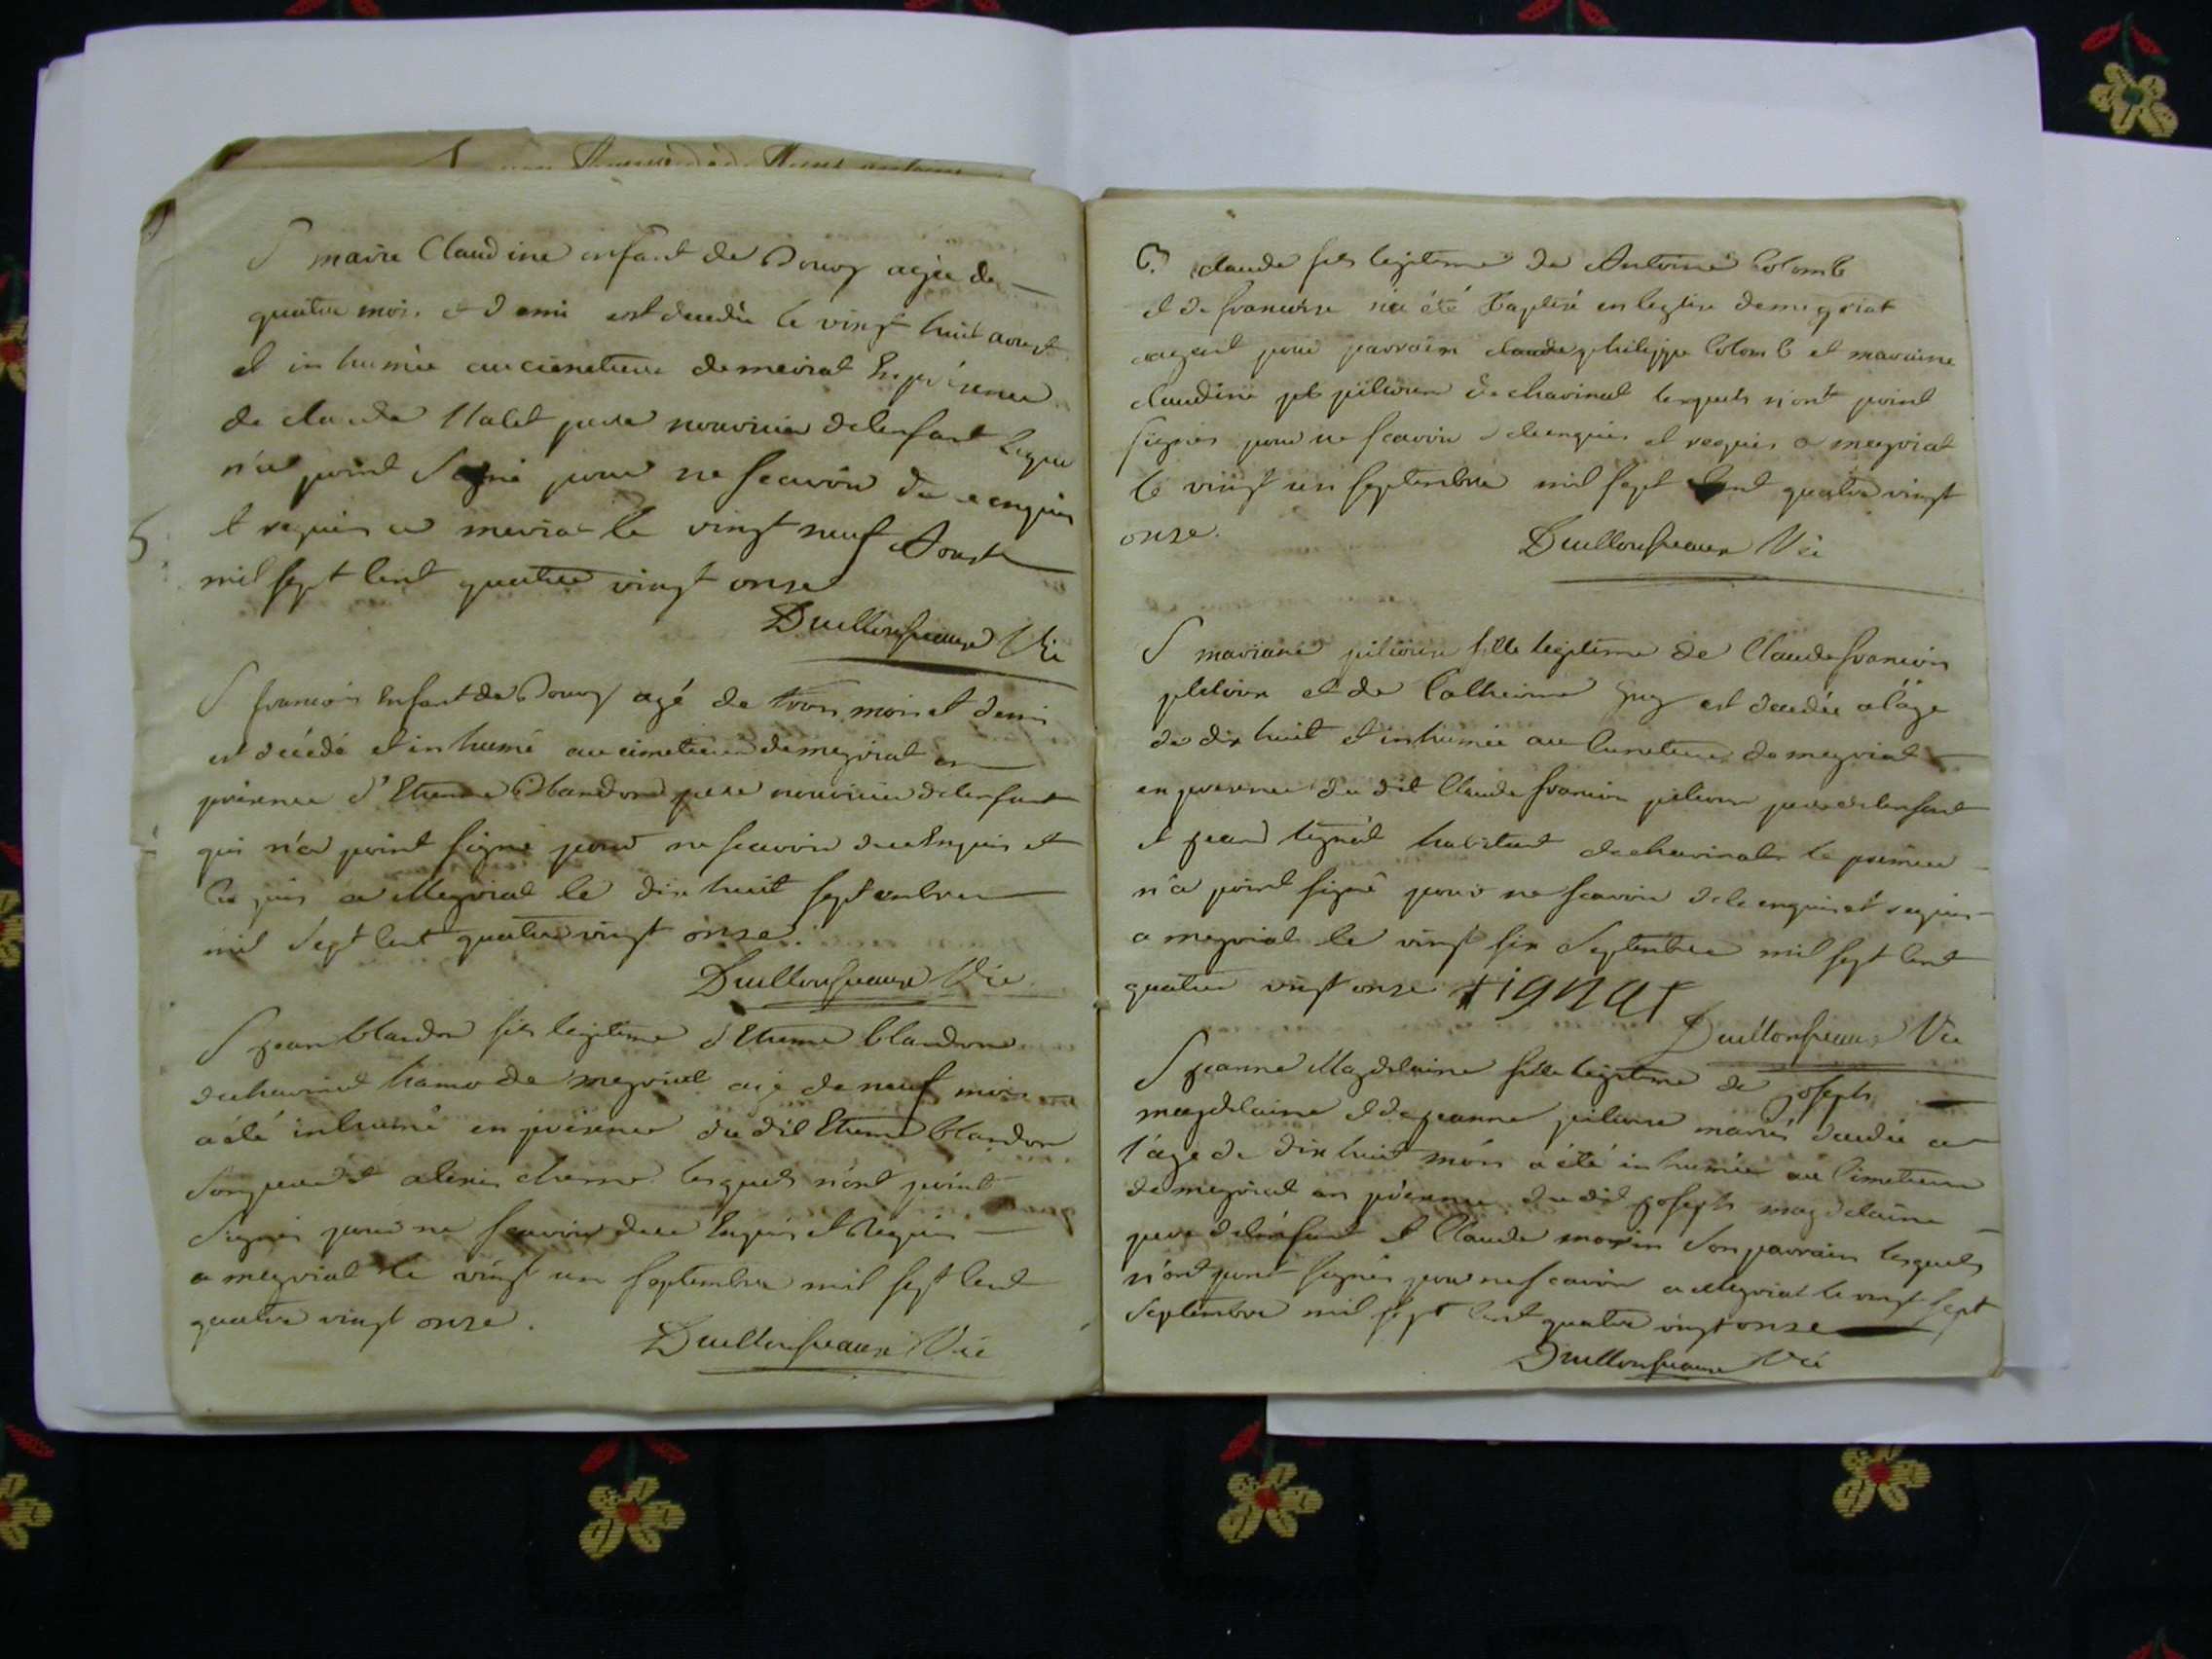 S marie Claudine enfant de Bourg agée de
quatre mois et demi est decedée le vingt huit aoust
et inhumée au cimetiere de meiriat En présence
de claude Nalet pere nouricier delenfant lequel
n'a point Signé pour ne scavoir de ce enquis
et requis a meiriat le vingt neuf Aoust
mil sept cent quatre vingt onse
Duillonfreaux Vic
S francois Enfant de Bourg agé de trois mois et demi
est décédé et inhumé au cimetiere de meyriat en
présence d'Etienne Blandon pere nouricier delenfant
qui n'a point signé pour ne scavoir de ce Enquis et
Requis a Meyriat le dix huit septembre
mil Sept cent quatre vingt onse.
Duillonfreaux Vic
S jean blandon fils legitime d'Etienne blandon
de chavinat hamo de meyriat agé de neuf mois
a été inhumé en présence du dit Etienne blandon
Son pere et alexis lesquels n'ont point
Signés pour ne scavoir de ce Enquis et Requis
a meyriat le vingt un septembre mil sept cent
quatre vingt onse.
Duillonfreaux Vic
B claude fils legitime de Antoine Colomb
et de francoise a été Baptisé en leglise de meyriat
ayant pour parrain claude philippe Colomb et maraine
claudine pitiour de chavinat lesquels n'ont point
signés pour ne scavoir de ce enquis et requis a meyriat
le vingt un septembre mil sept cent quatre vingt
onse.
Duillonfreaux Vic
S mariane fille legitime de Claude francois
et de Catherine Guy est decedée a l'age
de dix huit et inhumée au Cimetiere de meyriat
en presence du dit Claude francois pere delenfant
et jean tignat habitant de chavinat le premier
n'a point signé pour ne scavoir de ce enquis et requis
a meyriat le vingt six Septembre mil sept cent
quatre vingt onse tignat
Duillonfreaux Vic
S jeanne Magdelaine fille legitime de joseph
magdelaine et de jeanne mariés decedée a
l'age de dix huit mois a été inhumée au Cimetiere
de meyriat en présence du dit joseph magdelaine
pere delenfant et Claude morin Son parrain lesquels
n'ont point signés pour ne scavoir a Meyriat le vingt sept
Septembre mil sept cent quatre vingt onse
Duillonfreaux Vic